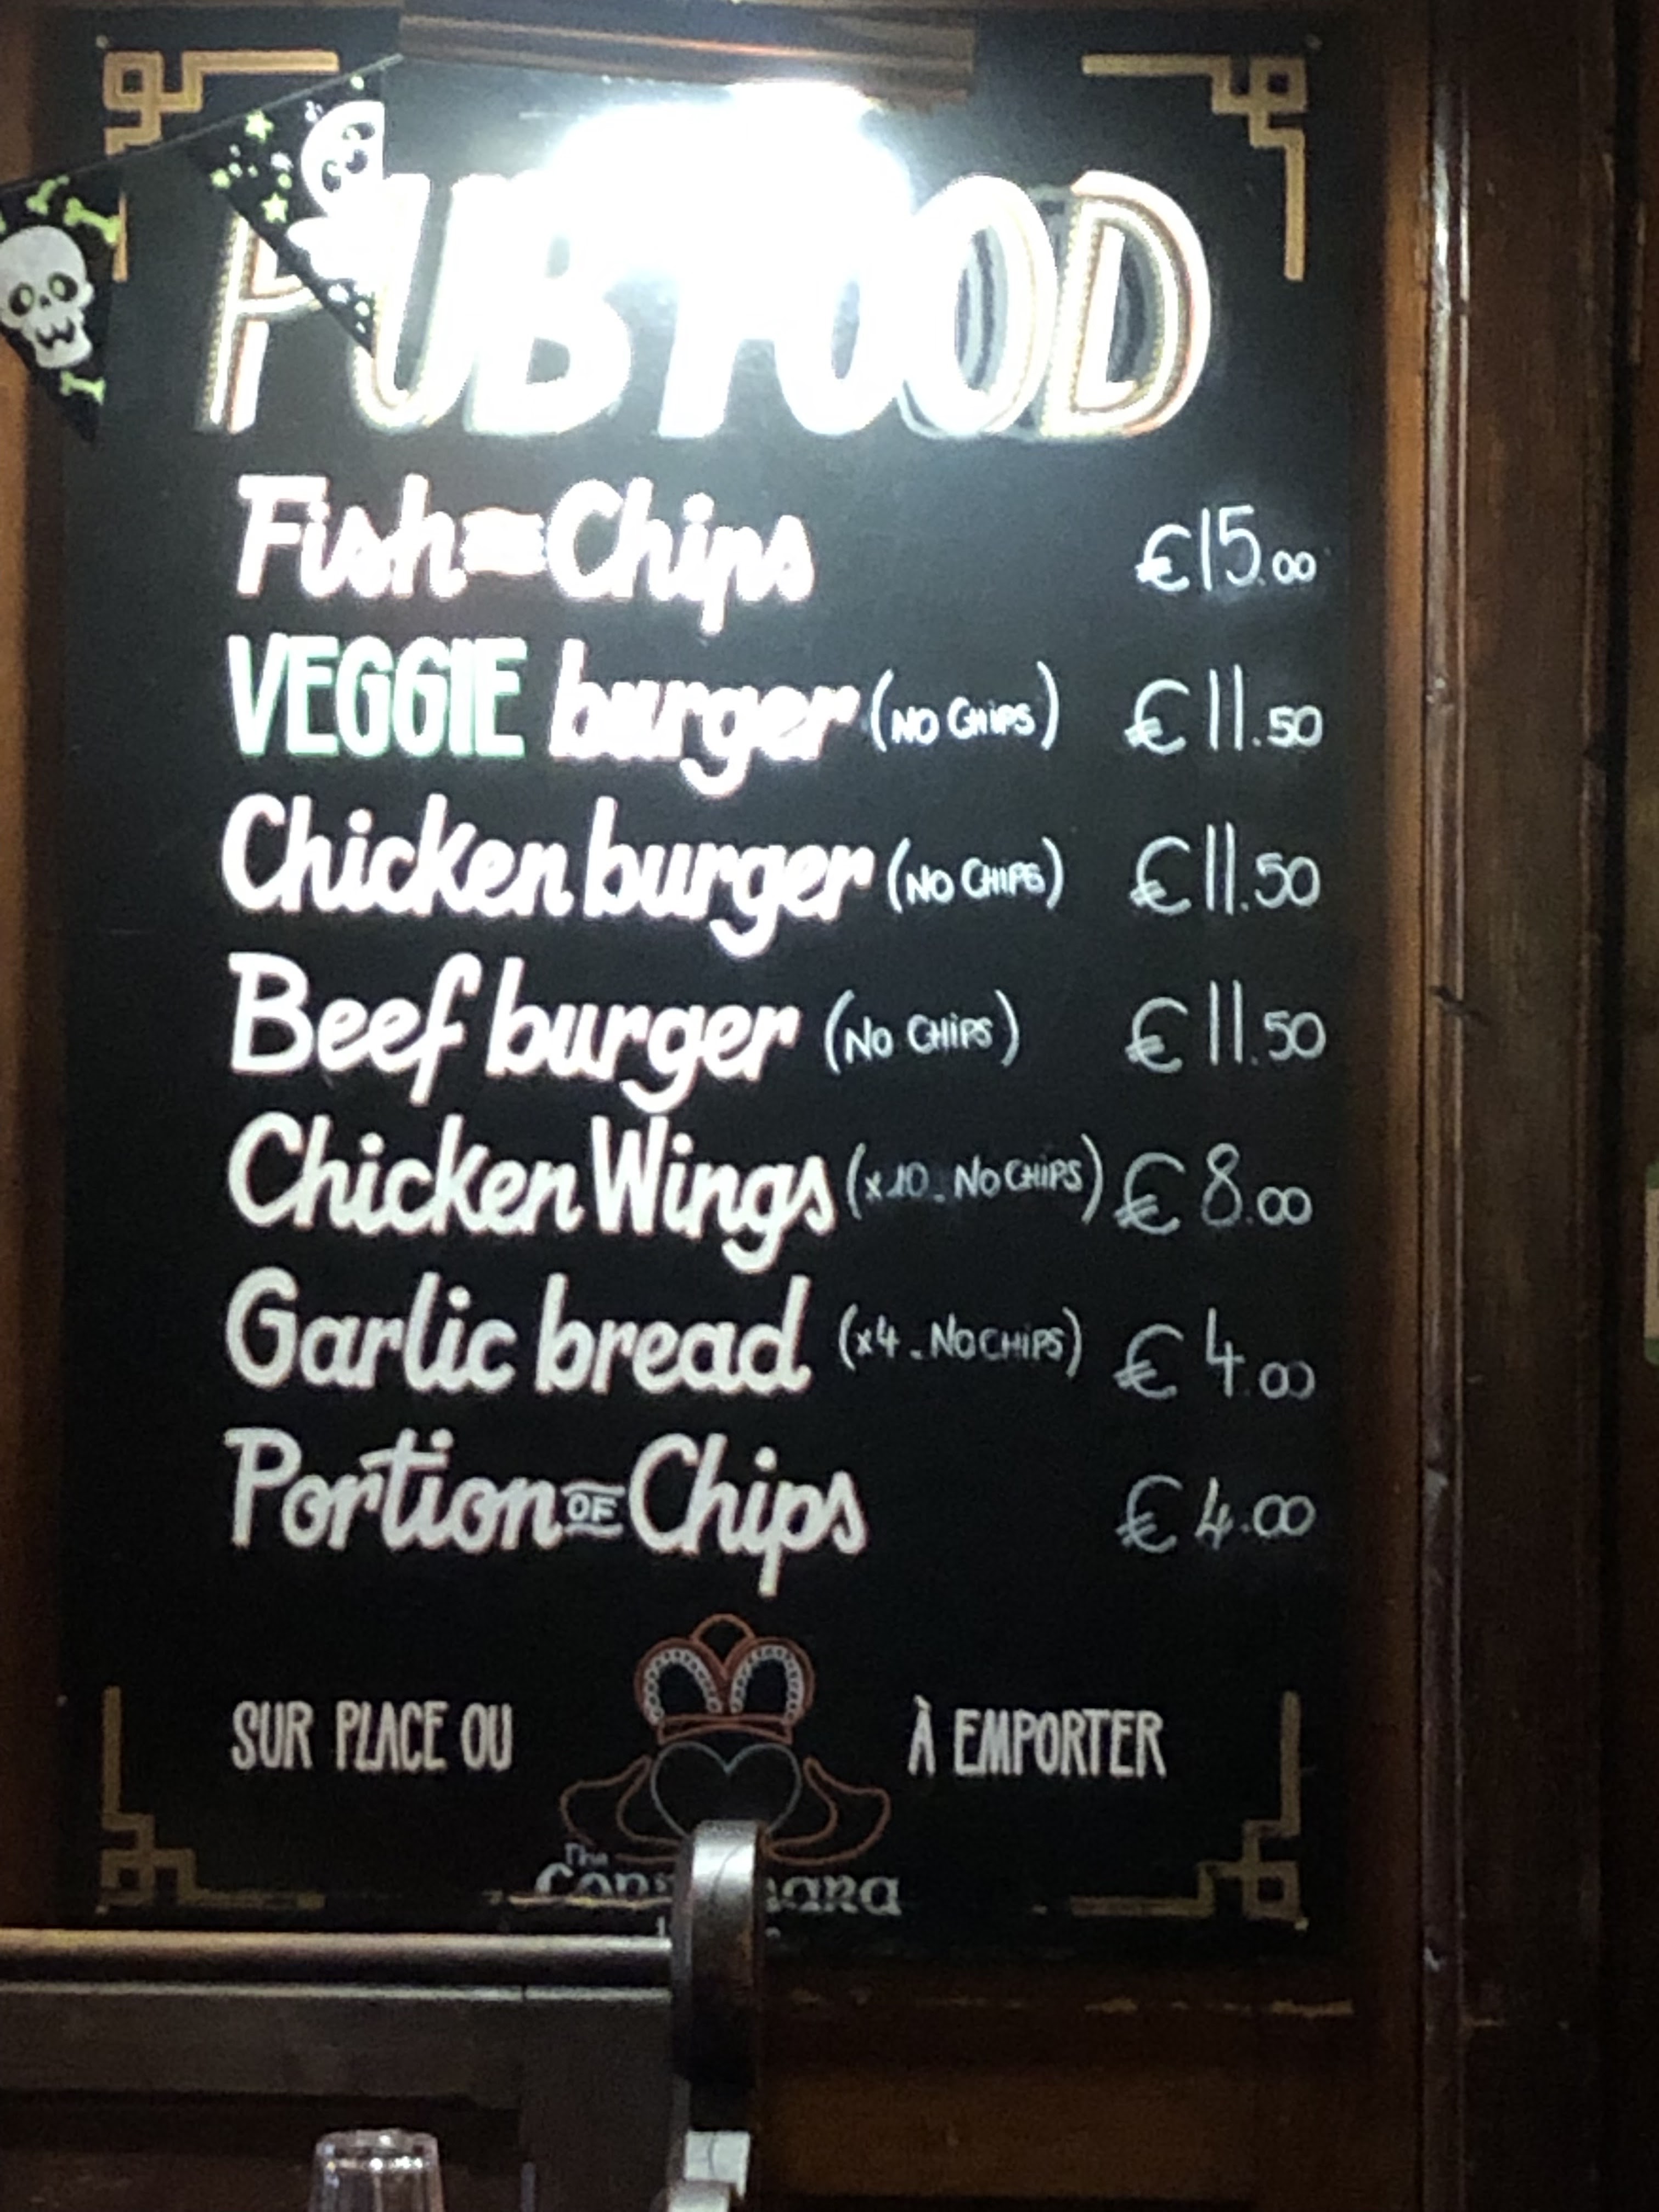 PUB FOOD
Fish Chips €15.00
VEGGIE burger (NO CHIPS) €11.50
Chicken burger (NO CHIPS) €11.50
Beef burger (NO CHIPS) €11.50
Chicken Wings (x10_ NO CHIPS) €8.00
Garlic bread (x4_ NO CHIPS) €4.00
Portion OF Chips €4.00
SUR PLACE OU À EMPORTER
The